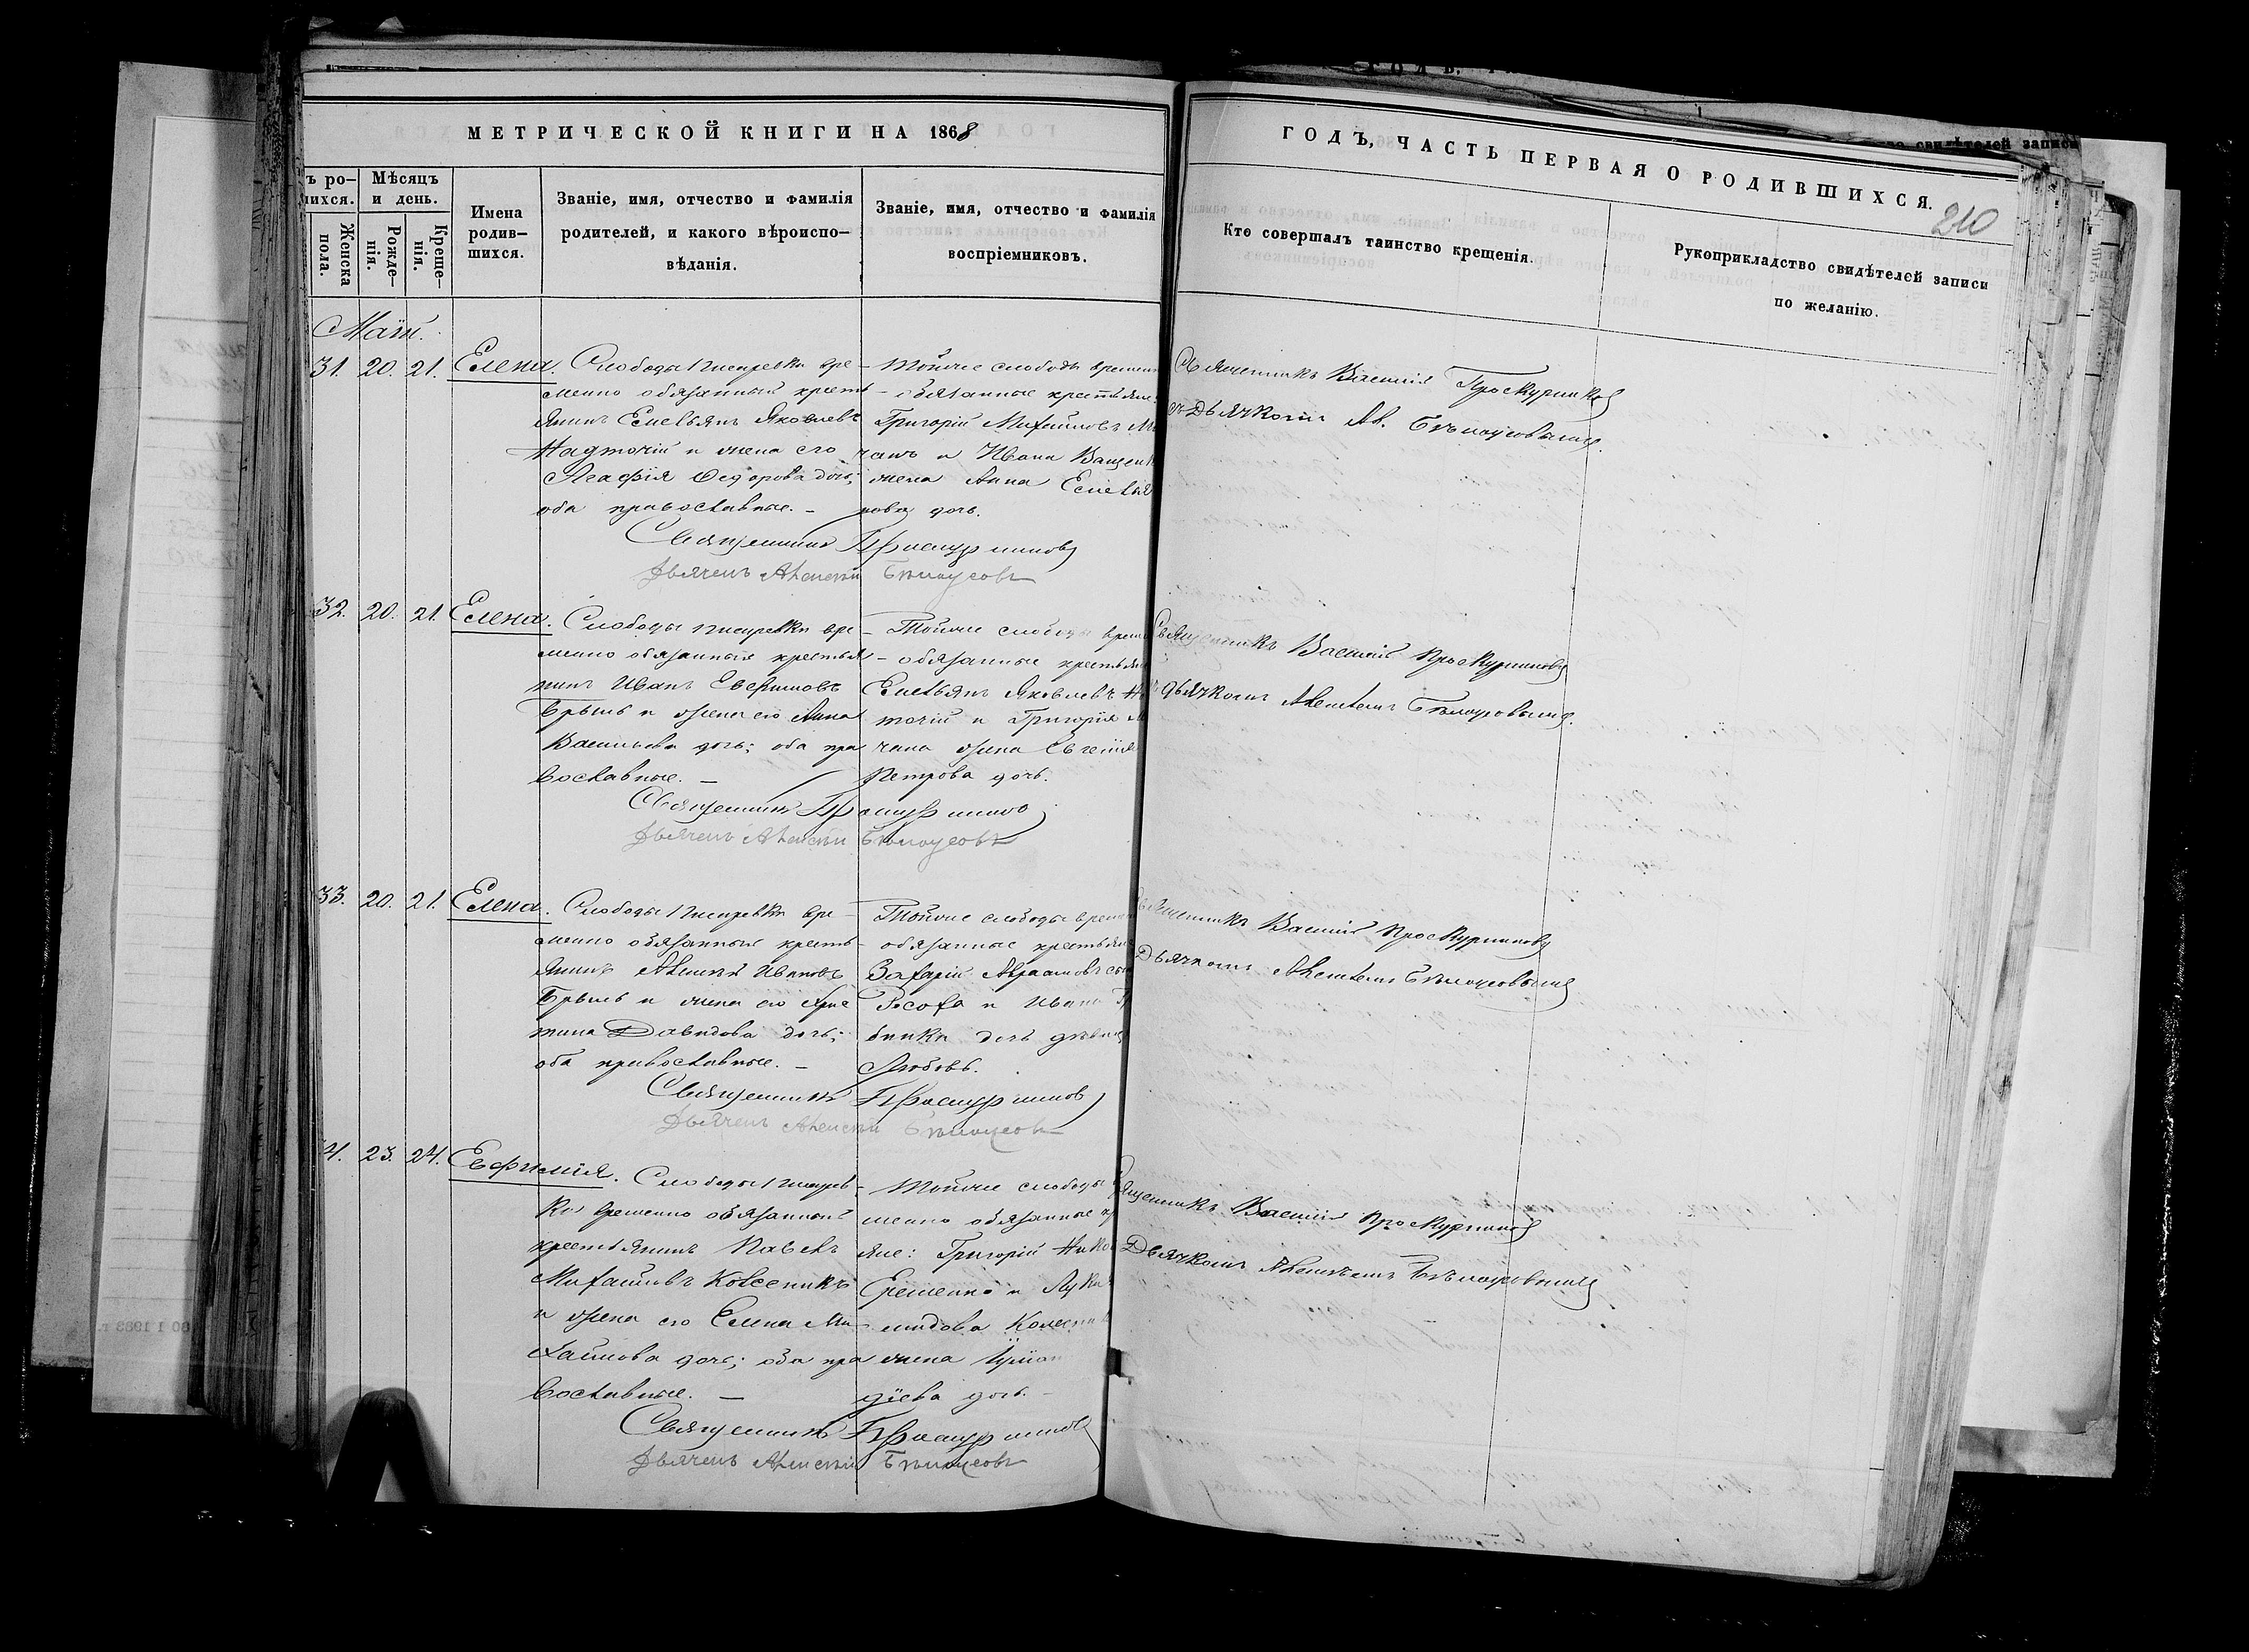 МЕТРИЧЕСКОЙ КНИГИ НА 1868
ГОДЪ, ЧАСТЬ ПЕРВАЯ О РОДИВШИХСЯ.
210
ъ ро-
шихся.
Женска
пола.
Мѣсяцъ
и день.
Рожде-
нія.
Креще-
нія.
Имена
родив-
шихся.
Званіе, имя, отчество и фамилія
родителей, и какого вѣроиспо-
вѣданія.
Званіе, имя, отчество и фамилія
воспріемниковъ.
Кто совершалъ таинство крещенія.
Рукоприкладство свидѣтелей записи
по желанію.
Май.
31. 20. 21. Елена.
Слободы Писаревки вре-
менно обязанный кресть
янинъ Емельянъ Яковлевъ
Надточій и жена его
Агафія Федорова дочь;
оба православные. -
Тойже слободы времен
обязанные крестьяне:
Григорій Михайловъ М
чанъ и Ивана Ващенк
жена Анна Емелья
нова дочь.
Священникъ Василій Проскурников
съ Дьячкомъ Ал. Бѣлоусовымъ.
Священникъ Проскурников
Дьячекъ Алексѣй Бѣлоусовъ
32. 20. 21. Елена.
Слободы Писаревки вре
менно обязанный крестья
нинъ Иванъ Евфимовъ
Брыль и жена его Анна
Васильева дочь; оба пра
вославные. -
Тойже слободы време
обязанные крестьяне
Емельянъ Яковлевъ На
точій и Григорія М
чана жена Евгенія
Петрова дочь.
Священникъ Василій Проскурников
дьячкомъ Алексѣемъ Бѣлоусовымъ.
Священникъ Проскурников
Дьячекъ Алексѣй Бѣлоусовъ
33. 20. 21. Елена.
Слободы Писаревки вре-
менно обязанный кресть-
янинъ Алексѣй Ивановъ
Брыль и жена его Хрис
тина Давидова дочь;
оба православные. -
Тойже слободы времен
обязанные крестьяне
Захарій Авраамовъ сын
и Ивана
дочь дѣвица
Любовь.
Священникъ Василій Проскурников
Дьячкомъ Алексѣемъ Бѣлоусовымъ
Священникъ Проскурников
Дьячекъ Алексѣй Бѣлоусовъ
4. 23. 24. Евфимія.
Слободы Писарев-
ки временно обязанный
крестьянинъ Павелъ
Михайловъ
и жена его Елена Ми-
хайлова дочь; оба пра
вославные. -
Тойже слободы
менно обязанные кр
яне: Григорій Нико
Еременко и Луки
жена
дочь. -
Священникъ Василій Проскурников
Дьячкомъ Алексѣемъ Бѣлоусовымъ
Священникъ Проскурников
Дьячекъ Алексѣй Бѣлоусовъ